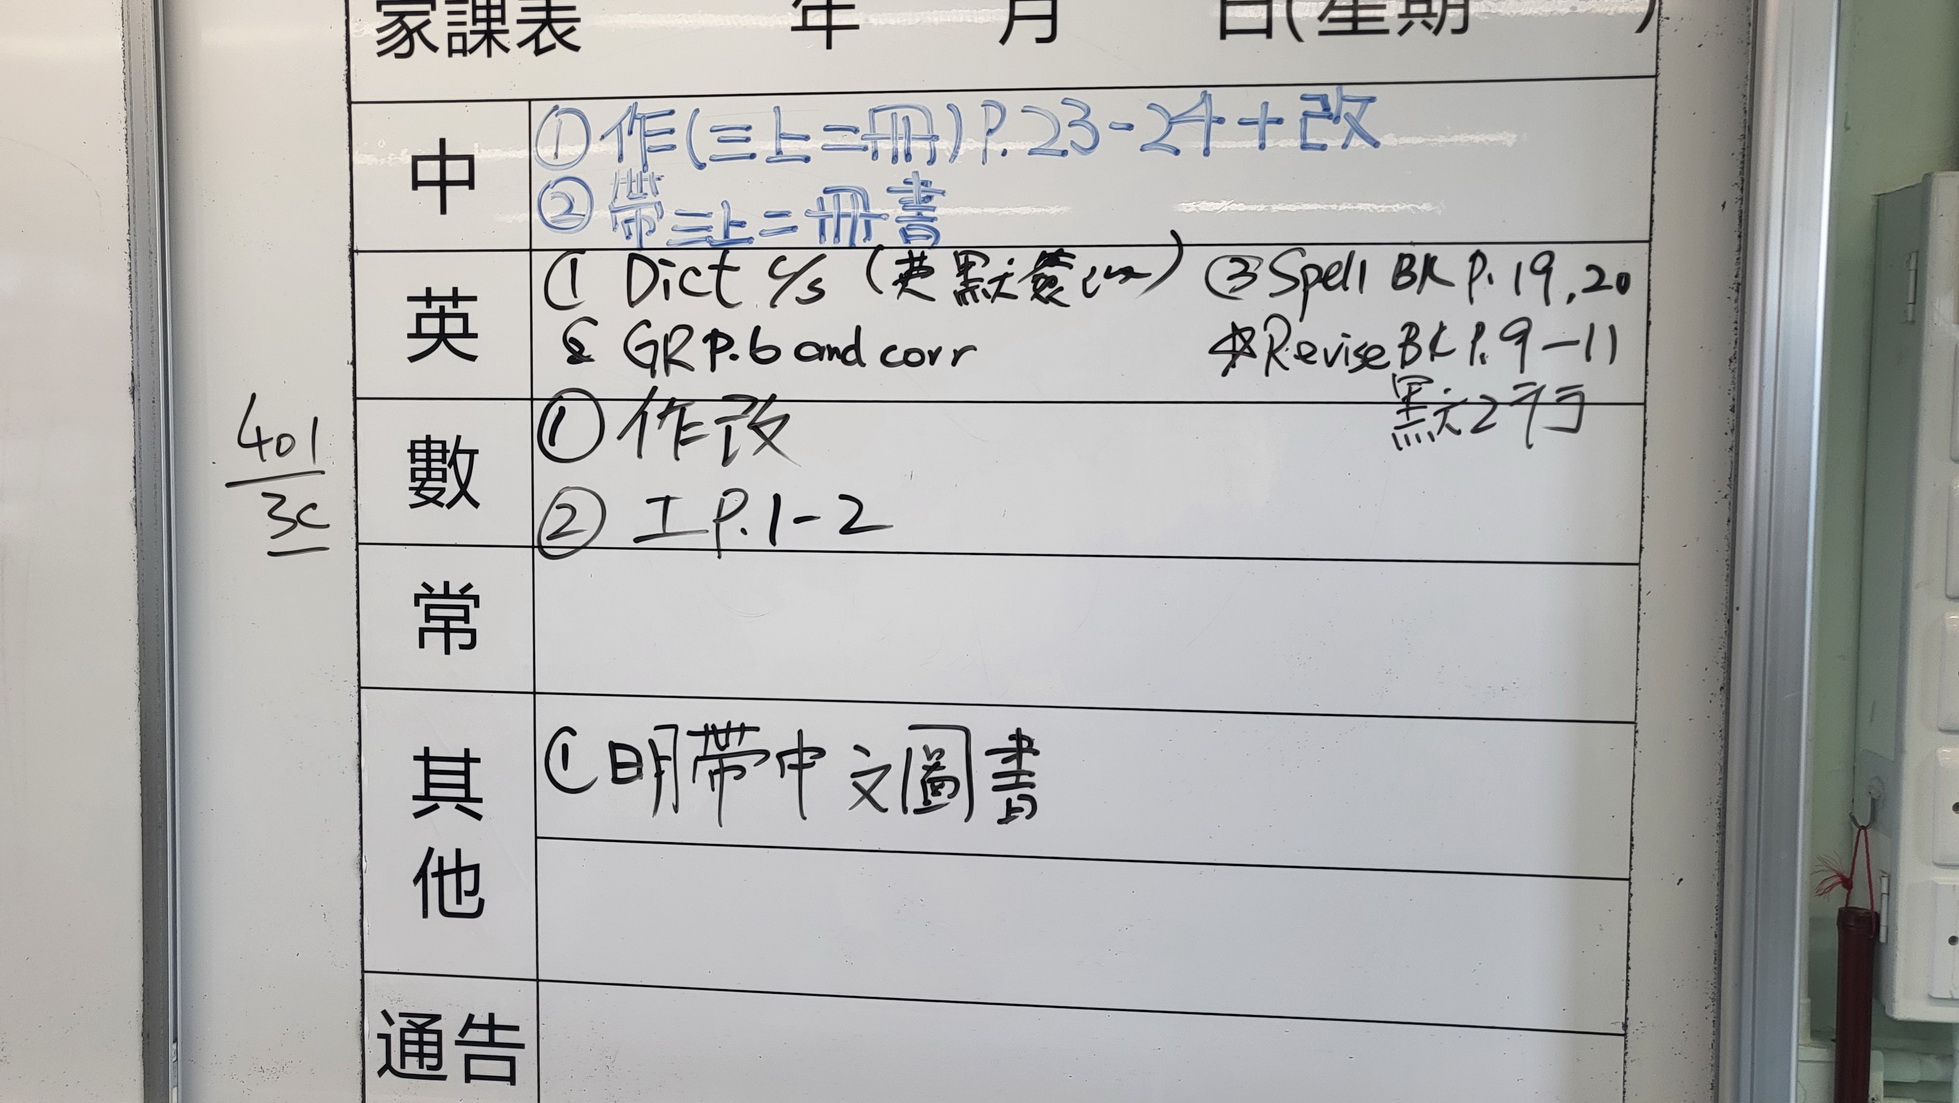 家課表 年 月 日(星期 )
中
① 作(三上二冊)P.23-24+改
② 帶三上二冊書
英
① Dict c/s (英默簽 ③ Spell BK P.19,20
& GR P.6 and corr ☆Revise BK P.9-11
默2行
401
3C
數
① 作改
② 工P.1-2
常
其他
① 明帶中文圖書
通告